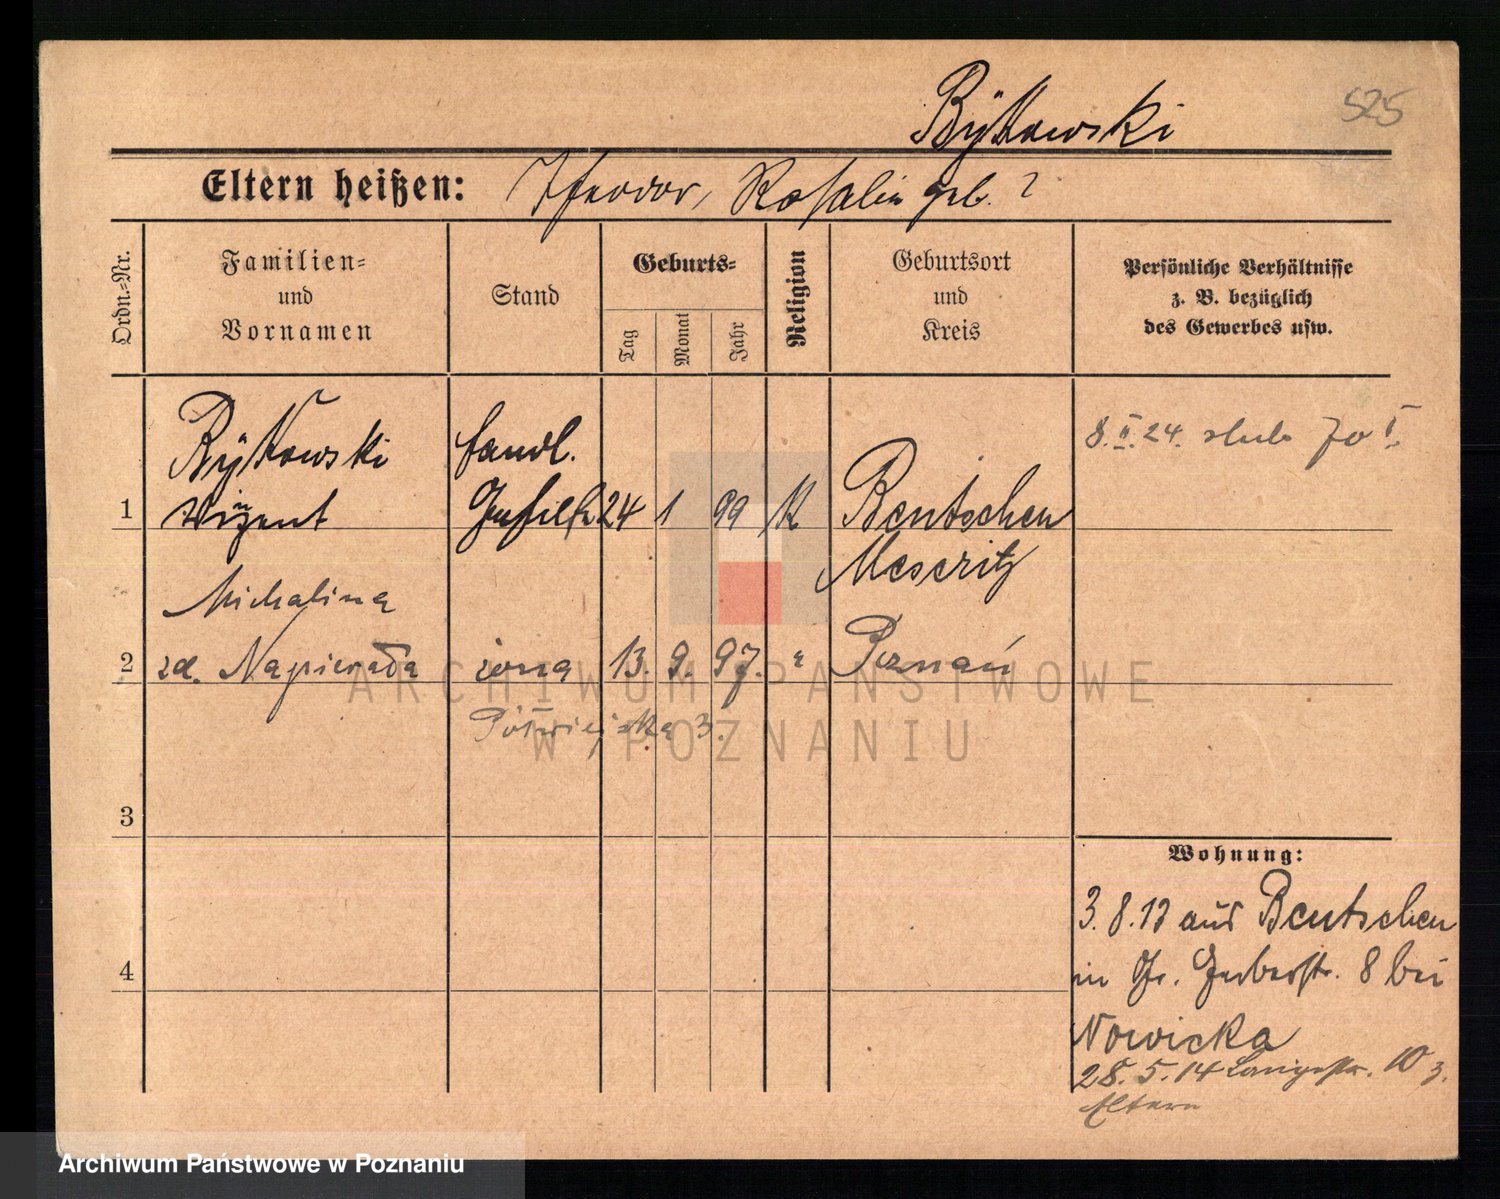 525
Bÿkowski
Eltern heißen: Theodor, Rosalie geb. ?
Ordn.-Nr.
Familien- und Vornamen
Stand
Geburts-
Tag
Monat
Jahr
Religion
Geburtsort und Kreis
Persönliche Verhältnisse z. B. bezüglich des Gewerbes usw.
Bÿkowski
Vinzent
Handl.
Gehilfe
1
24 1 99 K
Bentschen
Meseritz
8. II. 24. ślub
Michalina
2 zd. Napierała żona 13. 9. 97. " Poznań
Półwiejska 3.
3
4
Wohnung:
3. 8. 13 aus Bentschen
in Gr. Gerberstr. 8 bei
Nowicka
28. 5. 14 Langestr. 10 z.
Eltern
ARCHIWUM PAŃSTWOWE
W POZNANIU
Archiwum Państwowe w Poznaniu